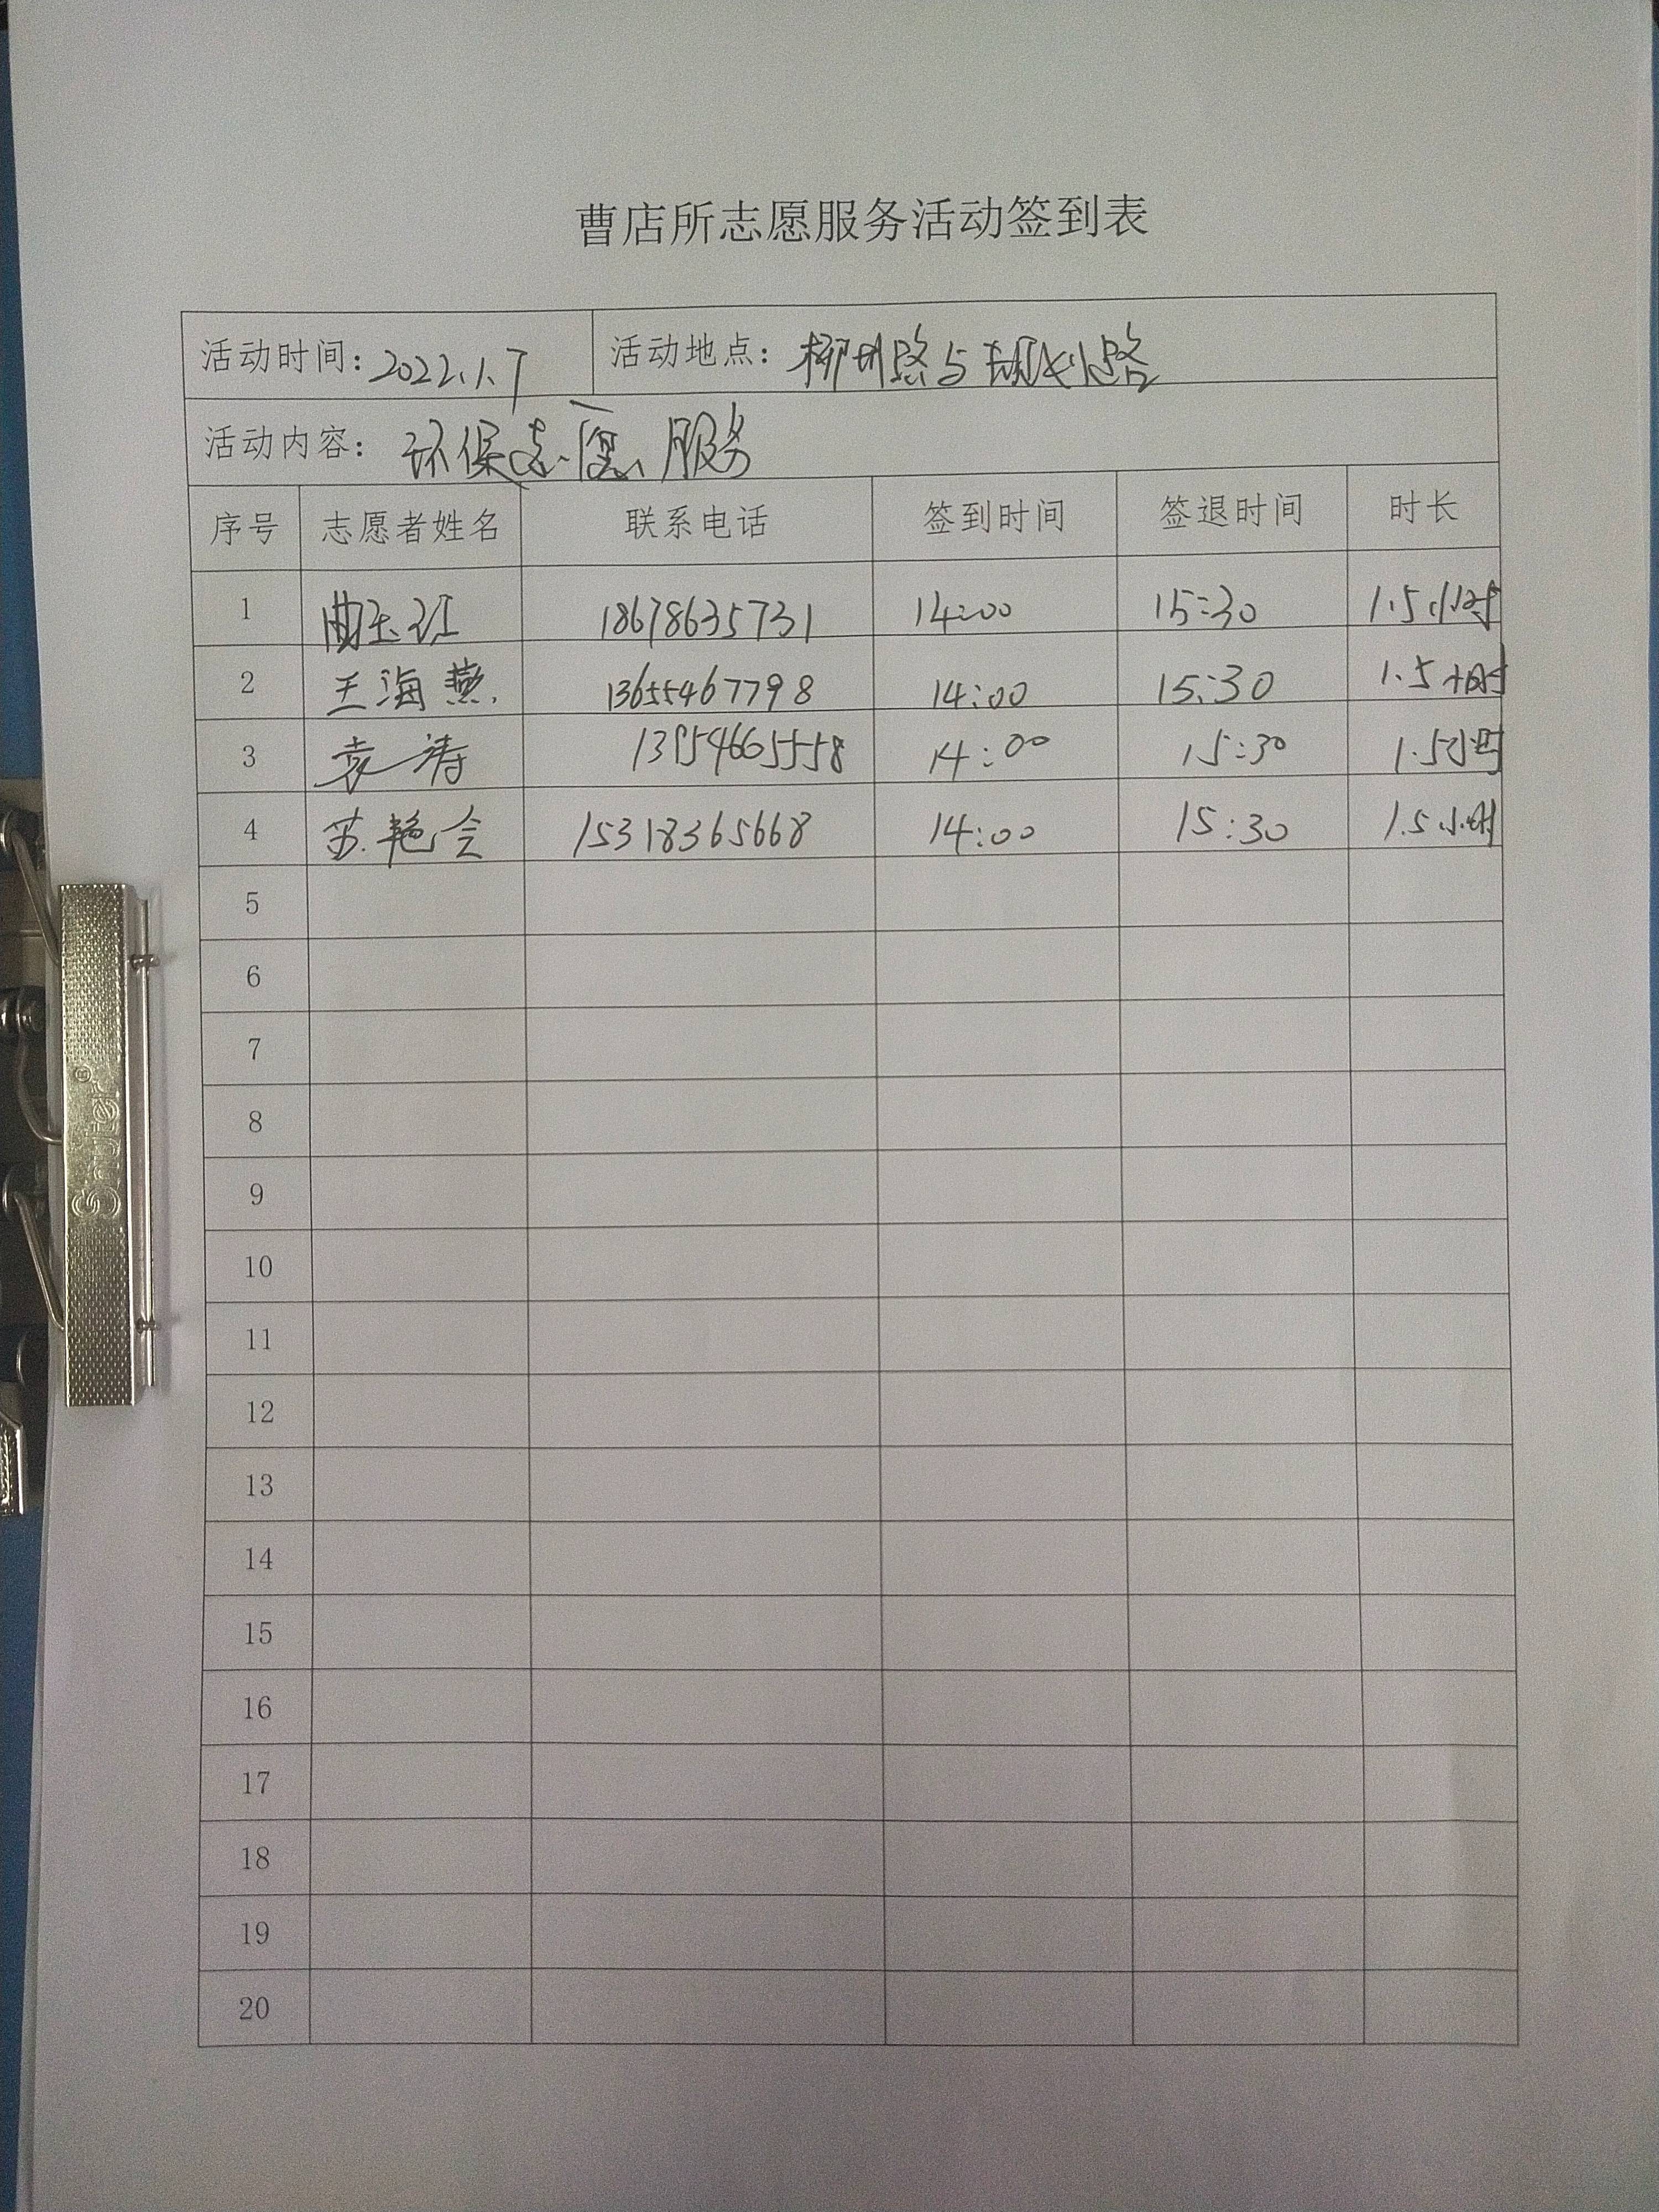 曹店所志愿服务活动签到表
活动时间：2022.1.7 活动地点：柳州路与规划路
活动内容：环保志愿服务
序号 志愿者姓名 联系电话 签到时间 签退时间 时长
1 曲玉红 18678635731 14:00 15:30 1.5小时
2 王海燕 13655467798 14:00 15:30 1.5小时
3 袁涛 13954665558 14:00 15:30 1.5小时
4 苏艳会 15318365668 14:00 15:30 1.5小时
5
6
7
8
9
10
11
12
13
14
15
16
17
18
19
20
Shuter®